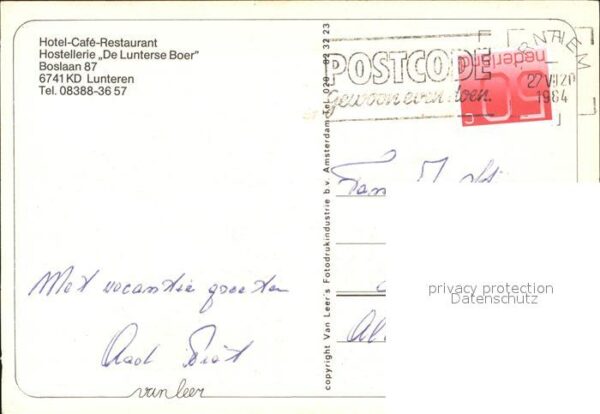 Hotel-Café-Restaurant
Hostellerie „De Lunterse Boer"
Boslaan 87
6741 KD Lunteren
Tel. 08388-36 57
POSTCODE
gewoon even doen.
ARNHEM
27 VII 20
1984
nederland
50 c
copyright Van Leer's Fotodrukindustrie b.v. Amsterdam-Tel. 020 - 82 32 23
Fam
Met vacantie groeten
Aad
van leer
privacy protection
Datenschutz